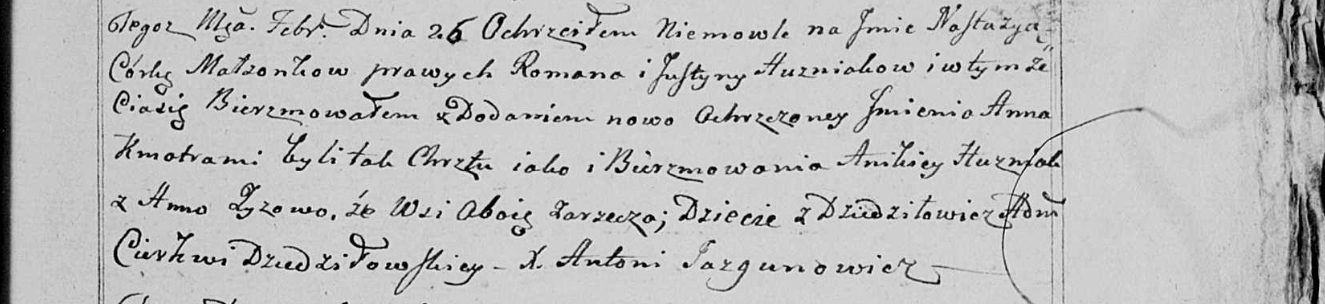 Tegoż Mca. Febr. Dnia 26 Ochrzciłem Niemowle na Jmie Nastazyą
Córkę Małżonkow prawych Romana i Justyny Huzniakow i w tymże
Ciasię Bierzmowałem z Dodaniem nowo Ochrzczoney Jmienia Anna
Kmotrami byli tak Chrztu iako i Bierzmowania Anikiey Huzniak
z Anno Zyzowo, ze Wsi Oboię Zarzecza; Dziecie z Dziedziłowicz
Cierkwi Dziedziłowskiey - X. Antoni Jazgunowicz